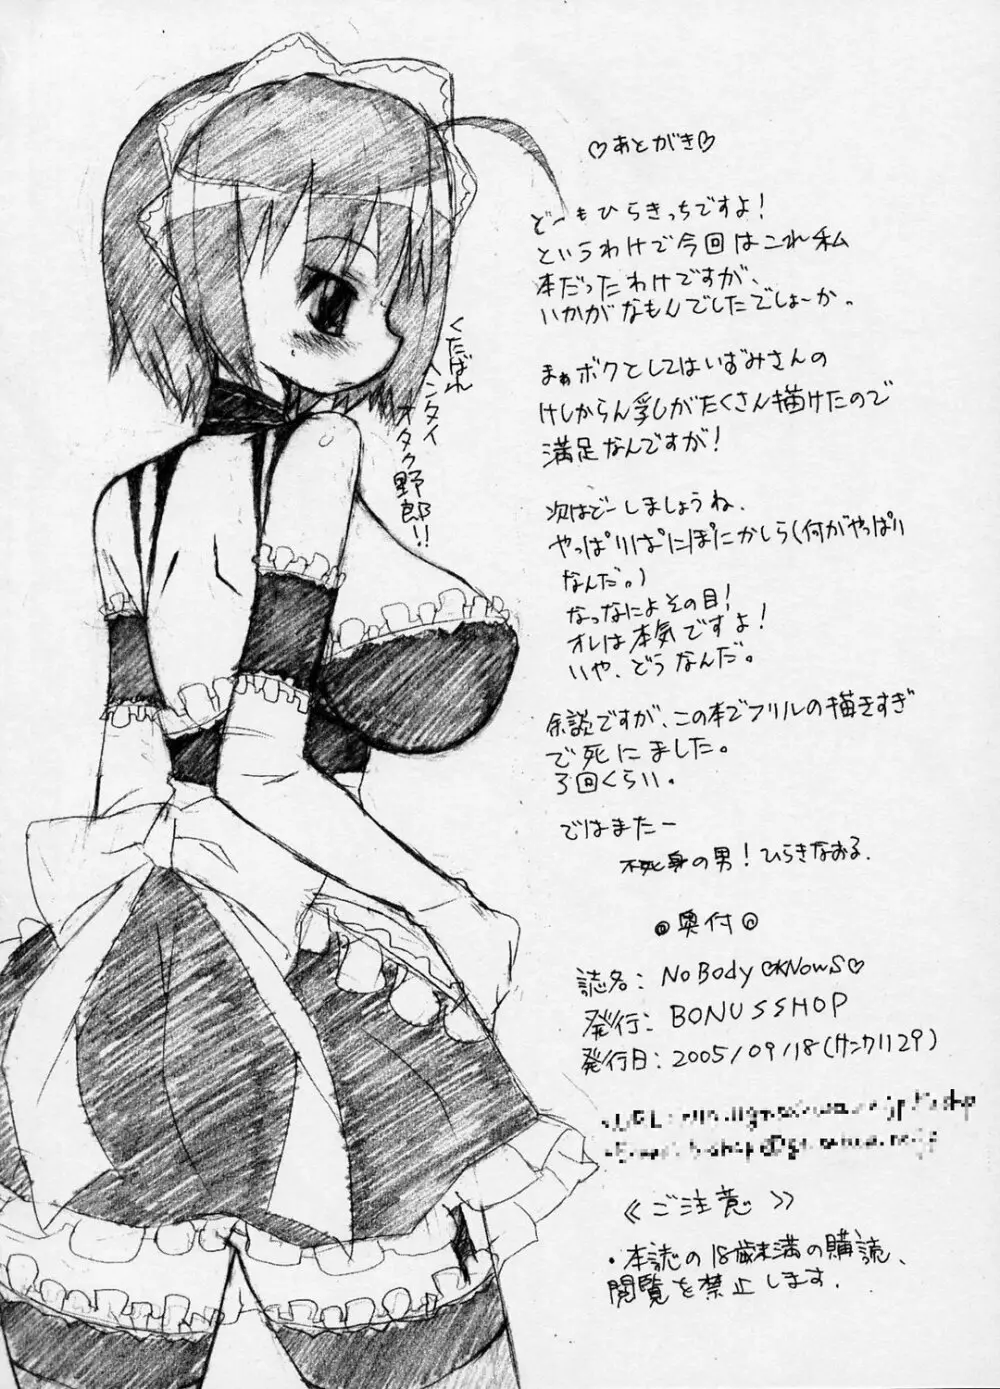 ♡あとがき♡
どーもひらきっちですよ!
というわけで今回はこれ私
本だったわけですが、
いかがなもんでしたでしょーか。
まぁボクとしてはいずみさんの
けしからん乳しがたくさん描けたので
満足なんですが!
次はどーしましょうね、
やっぱりぱにぽにかしら(何がやっぱり
なんだ。)
なっなによその目!
オレは本気ですよ!
いや、どうなんだ。
余談ですが、この本でフリルの描きすぎ
で死にました。
3回くらい。
ではまたー
不死身の男!ひらきなおる.
くたばれ
ヘンタイ
オタク野郎!!
◎奥付◎
誌名:NoBody♡KNowS♡
発行:BONUSSHOP
発行日:2005/09/18(サンクリ29)
《ご注意》
・本誌の18歳未満の購読、
閲覧を禁止します.